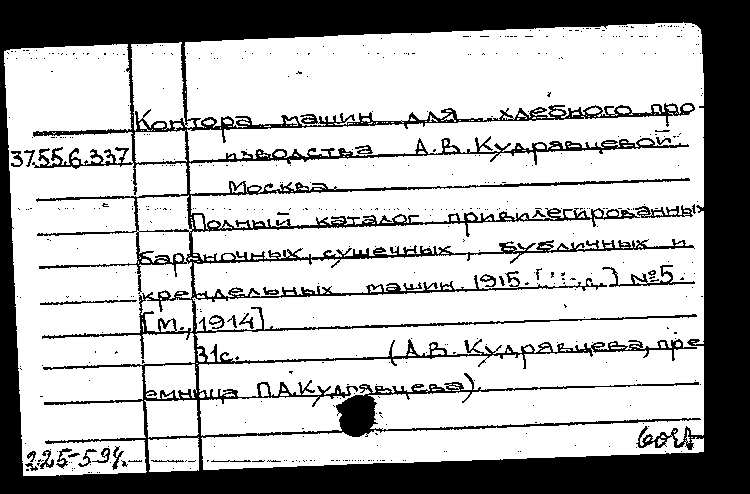 Контора машин для хлебного про-
37.55.6.337
изводства А.В.Кудрявцевой.
Москва.
Полный каталог привилегированных
бараночных, сушечных, бубличных и
крендельных машин 1915. № 5.
[М., 1914].
31с. (А.В. Кудрявцева, пре-
емница П.А.Кудрявцева).
225-594.